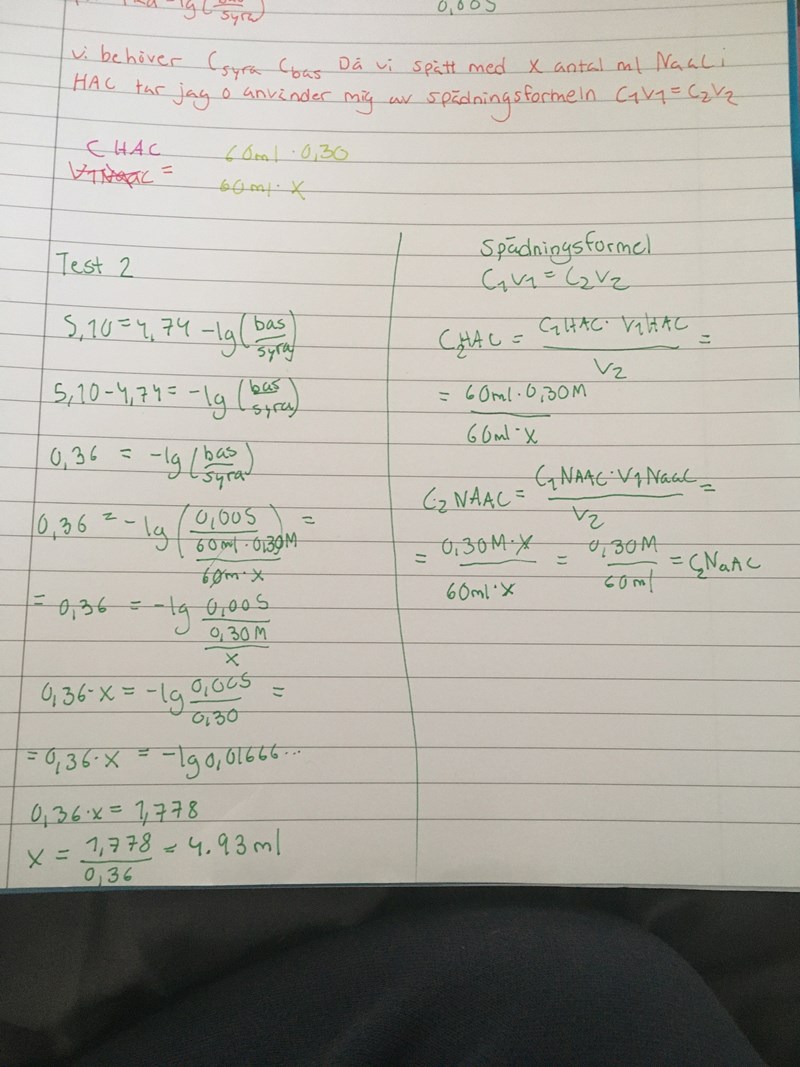 -lg(bas/syra)
0,005
Vi behöver Csyra Cbas Då vi spätt med X antal ml NaaC i
HAC tar jag o använder mig av spädningsformeln C1V1=C2V2
C HAC
60ml·0,30
V1NaaC =
60ml·X
Test 2
5,10=4,74 -lg(bas/syra)
5,10-4,74= -lg(bas/syra)
0,36 = -lg(bas/syra)
0,36 = -lg(0,005/(60ml·0,30M/60m·x)) =
= 0,36 = -lg 0,005/(0,30M/x)
0,36·x = -lg 0,005/0,30 =
=0,36·x = -lg0,01666...
0,36·x= 1,778
x = 1,778/0,36 = 4.93ml
Spädningsformel
C1V1=C2V2
C2HAC = C1HAC·V1HAC/V2 =
= 60ml·0,30M/60ml·x
C2NAAC= C1NAAC·V1NaaC/V2 =
= 0,30M·x/60ml·x = 0,30M/60ml = C2NaAC